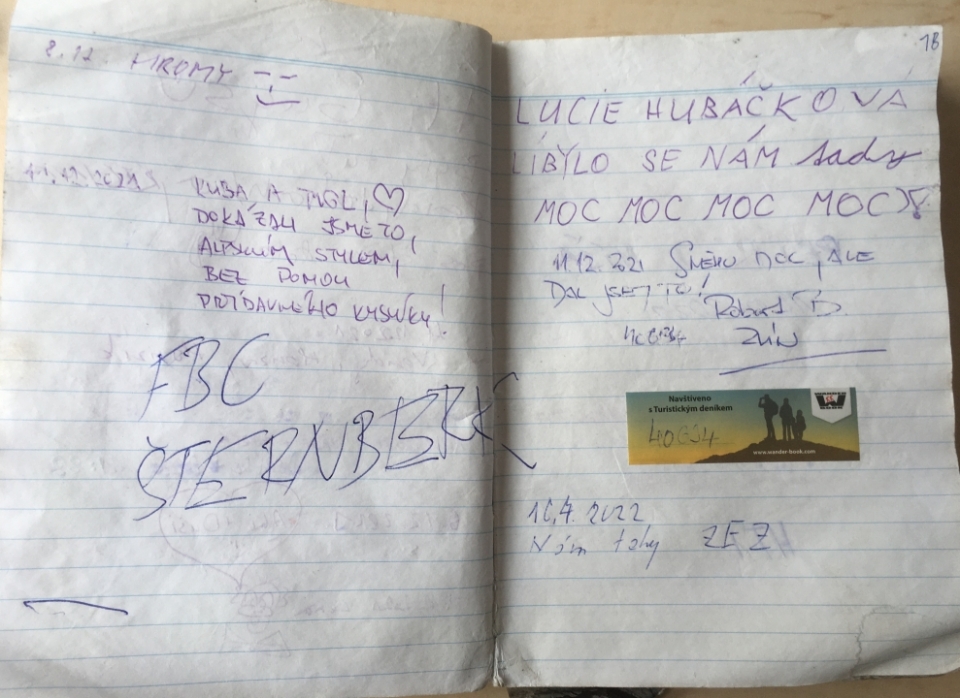 8.12. HROMY
11.12.2021
KUBA A MGL,
DOKÁZALI JSME TO,
ALPSKÝM STYLEM,
BEZ POMOCI
PŘÍDAVNÉHO KYSLÍKU!
FBC
ŠTERNBERK
18
LUCIE HUBÁČKOVÁ
LÍBYLO SE NÁM tady
MOC MOC MOC MOC!
11.12.2021 SNĚHU MOC, ALE
Robert B
Zlín
Navštíveno
s Turistickým deníkem
40634
www.wander-book.com
2022
Nám taky ZEZ